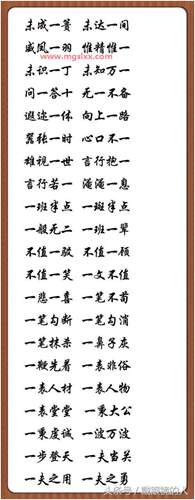 未成一篑 未达一间
威凤一羽 惟精惟一
www.mgslxx.com
未识一丁 未知万一
问一答十 无一不备
遐迩一体 向上一路
嚣张一时 心口不一
雄视一世 言行抱一
言行若一 淹淹一息
一班半点 一斑半点
一般无二 一班一辈
不值一驳 不值一顾
不值一笑 一文不值
一悲一喜 一笔不苟
一笔勾断 一笔勾消
一笔抹杀 一鼻子灰
一鞭先着 一表非俗
一表人材 一表人物
一表堂堂 一秉大公
一秉虔诚 一波万波
一步登天 一夫当关
一夫之用 一夫之勇
头条号